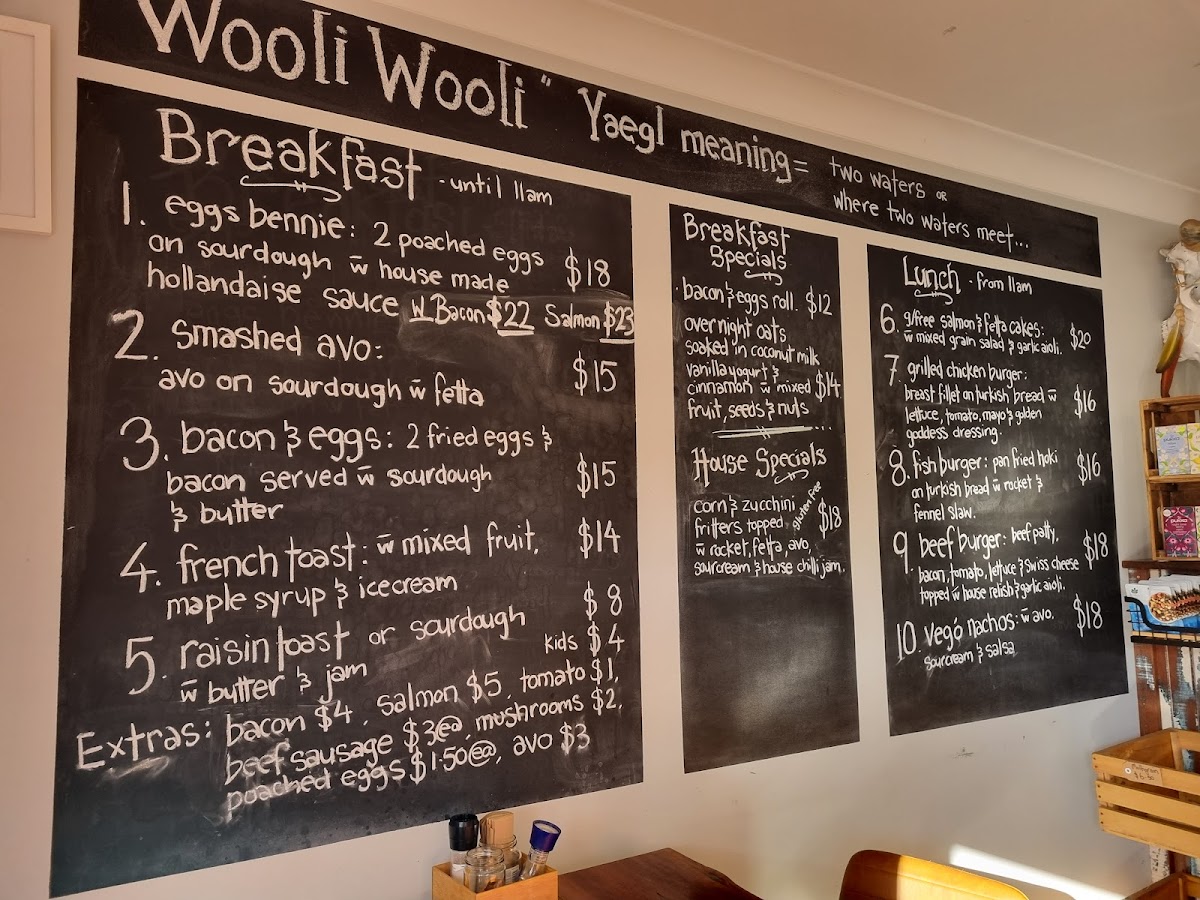 Wooli Wooli" Yaegl meaning= two waters or
where two waters meet...
Breakfast - until 11am
1. eggs bennie: 2 poached eggs
on sourdough w house made $18
hollandaise sauce w Bacon $22 Salmon $23
2. smashed avo: $15
avo on sourdough w fetta
3. bacon & eggs: 2 fried eggs &
bacon served w sourdough $15
& butter
4. french toast: w mixed fruit, $14
maple syrup & icecream
5. raisin toast or sourdough $8
w butter & jam kids $4
Extras: bacon $4, salmon $5, tomato $1,
beef sausage $3e@, mushrooms $2,
poached eggs $1.50e@, avo $3
Breakfast
Specials
bacon & eggs roll. $12
over night oats
soaked in coconut milk
vanilla yogurt &
cinnamon w mixed $14
fruit, seeds & nuts
House Specials
corn & zucchini
fritters topped gluten free $18
w rocket, fetta, avo,
sourcream & house chilli jam.
Lunch - from 11am
6. g/free salmon & fetta cakes: $20
w mixed grain salad & garlic aioli.
7 grilled chicken burger:
breast fillet on turkish bread w $16
lettuce, tomato, mayo & golden
goddess dressing.
8. fish burger: pan fried hoki $16
on turkish bread w rocket &
fennel slaw.
9. beef burger: beef patty, $18
bacon, tomato, lettuce & Swiss cheese
topped w house relish & garlic aioli,
10. vego nachos: w avo. $18
sourcream & salsa
pukka